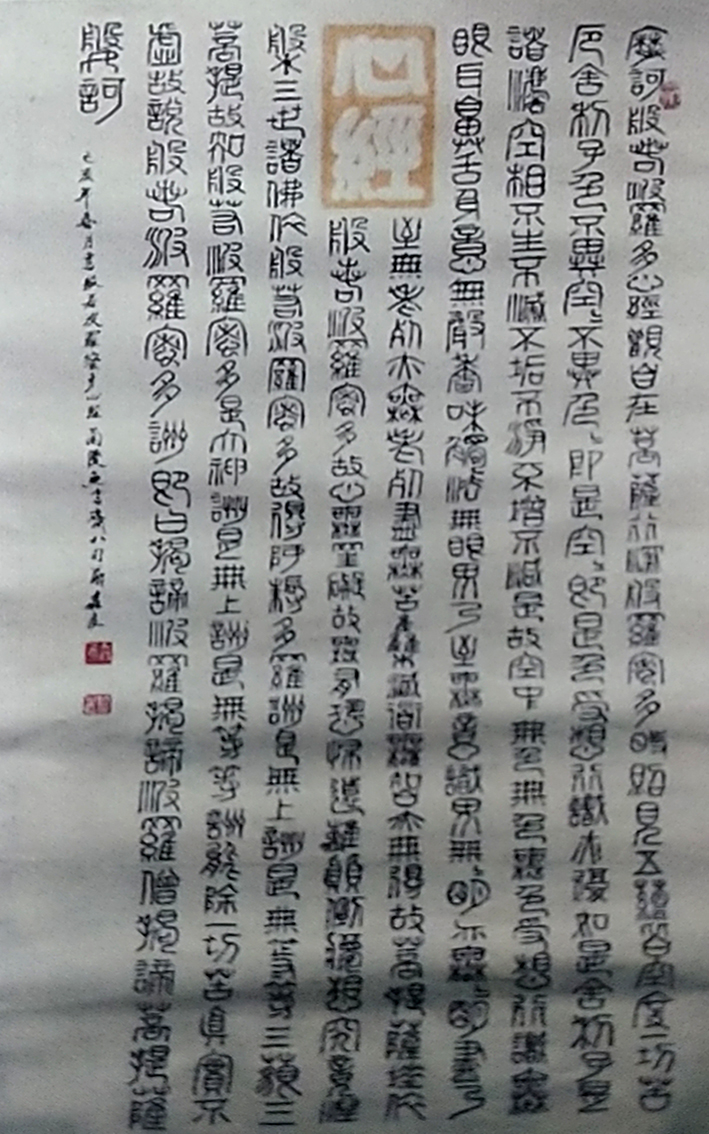 摩訶般若波羅多心經觀自在菩薩行深波羅蜜多時照見五蘊皆空度一切苦
厄舍利子色不異空〻不異色〻即是空〻即是色受想行識亦復如是舍利子是
諸法空相不生不滅不垢不淨不增不減是故空中無色無色受想行識無
眼耳鼻舌身意無聲香味觸法無眼界乃至無意識界無明亦無明盡乃
至無老死亦無老死盡無苦集滅道無智亦無得故菩提薩埵依
心經
般若波羅蜜多故心無罣礙故無有恐怖遠離顛倒夢想究竟涅
槃三世諸佛依般若波羅蜜多故得阿耨多羅詶是無上詶是無等等三藐三
菩提故知般若波羅蜜多是大神詶是無上詶是無等等詶能除一切苦真實不
虛故說般若波羅蜜多詶即曰揭諦波羅揭諦波羅僧揭諦菩提薩
般訶
己亥年春月書般若波羅蜜多心經